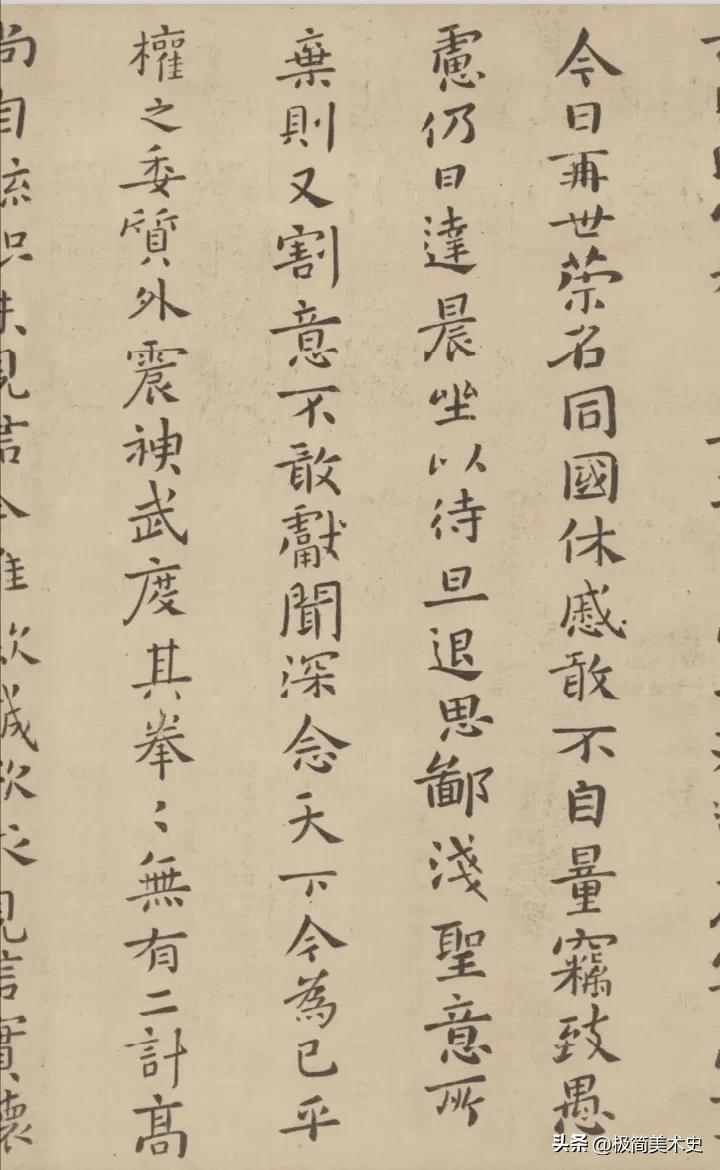 今日再世荣名同國休慼敢不自量竊致愚
慮仍日達晨坐以待旦退思鄙淺聖意所
棄則又割意不敢獻聞深念天下今為已平
權之委質外震神武度其拳〻無有二計高
尚自疏見見信實懷
头条 @极简美术史